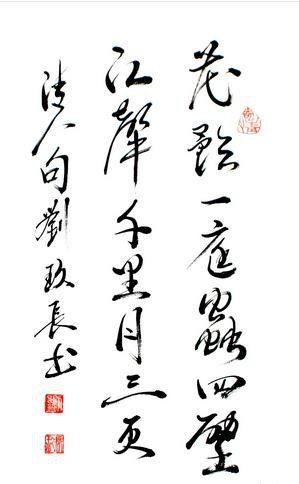 花影一庭蟲四壁
江聲千里月三更
清人句劉長書